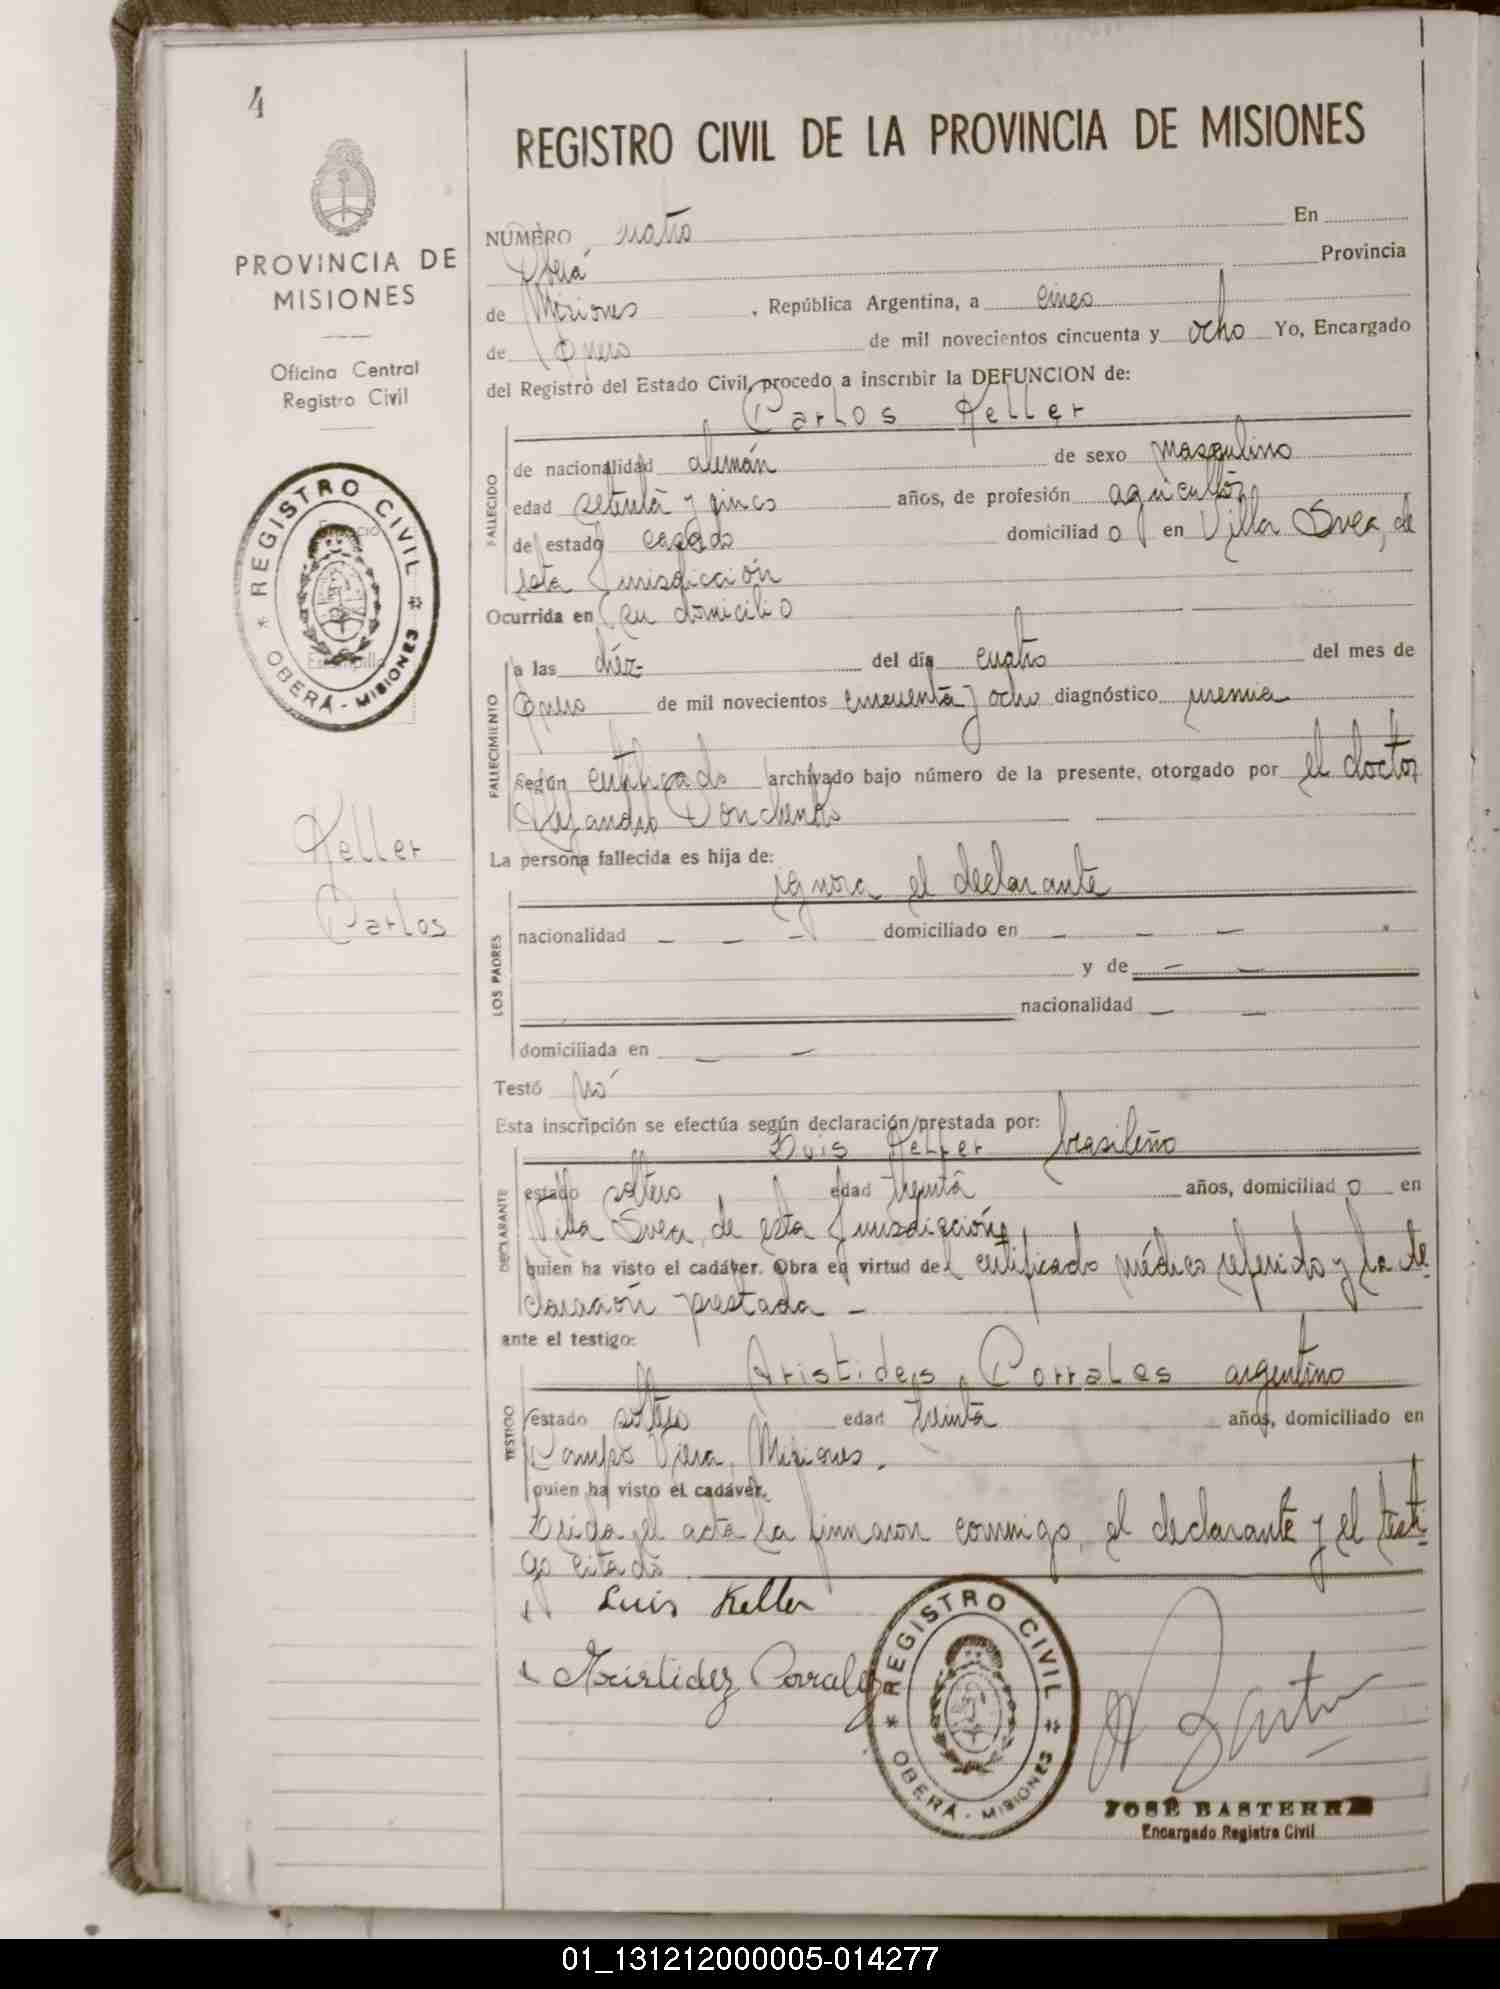 4
PROVINCIA DE
MISIONES
Oficina Central
Registro Civil
REGISTRO CIVIL
OBERÁ - MISIONES
Keller
Carlos
REGISTRO CIVIL DE LA PROVINCIA DE MISIONES
NUMERO cuatro En
Oberá Provincia
de Misiones, República Argentina, a cinco
de Enero de mil novecientos cincuenta y ocho Yo, Encargado
del Registro del Estado Civil, procedo a inscribir la DEFUNCION de:
Carlos Keller
FALLECIDO
de nacionalidad alemán de sexo masculino
edad setenta y cinco años, de profesión agricultor
de estado casado domiciliado en Villa Svea, de
esta Jurisdicción
Ocurrida en su domicilio
FALLECIMIENTO
a las diéz del día cuatro del mes de
Enero de mil novecientos cincuenta y ocho diagnóstico uremia
según certificado archivado bajo número de la presente, otorgado por el doctor
Alejandro
La persona fallecida es hija de:
ignora el declarante
LOS PADRES
nacionalidad — — — domiciliado en — — —
y de — —
nacionalidad — —
domiciliada en — —
Testó nó
Esta inscripción se efectúa según declaración prestada por:
Luis Keller brasileño
DECLARANTE
estado soltero edad treinta años, domiciliado en
Villa Svea, de esta Jurisdicción,
quien ha visto el cadáver. Obra en virtud del certificado médico referido y la de-
claración prestada —
ante el testigo:
Aristides Corrales argentino
TESTIGO
estado soltero edad treinta años, domiciliado en
Campo Viera, Misiones.
quien ha visto el cadáver.
Leida el acta la firmaron conmigo, el declarante y el testi-
go citado.
Luis Keller
Aristidez Corrales
REGISTRO CIVIL
OBERÁ - MISIONES
JOSÉ BASTERRA
Encargado Registro Civil
01_131212000005-014277